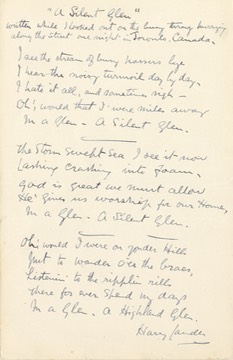 "A Silent Glen"
written while I looked out on the busy throng surging
along the street one night – Toronto, Canada.
I see the stream of busy life
I hear the noisy turmoil day by day.
I hate it all, and sometimes sigh –
Oh! would that I were miles away
In a Glen – A Silent Glen.
The Storm Swept Sea I see it now
Lashing Crashing into Foam.
God is great we must allow
He gives us worship for our Home,
In a Glen – A Silent Glen.
Oh! would I were on yonder Hills
Just to wander o'er the braes,
Listenin' to the ripplin rills
There for ever spend my days
In a Glen – A Highland Glen.
Harry Lauder